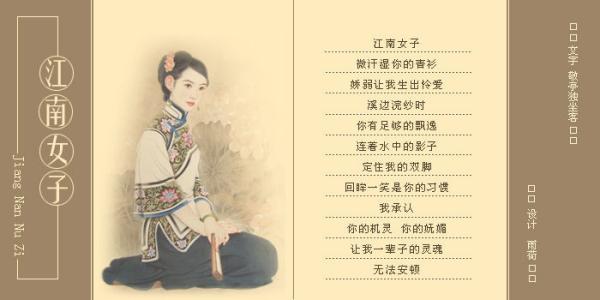 江南女子
Jiang Nan Nu Zi
江南女子
微汗湿你的春衫
娇弱让我生出怜爱
溪边浣纱时
你有足够的飘逸
连着水中的影子
定住我的双脚
回眸一笑是你的习惯
我承认
你的机灵 你的妩媚
让我一辈子的灵魂
无法安顿
□□文字 敬亭独坐客□□
□□ 设计 雨荷 □□